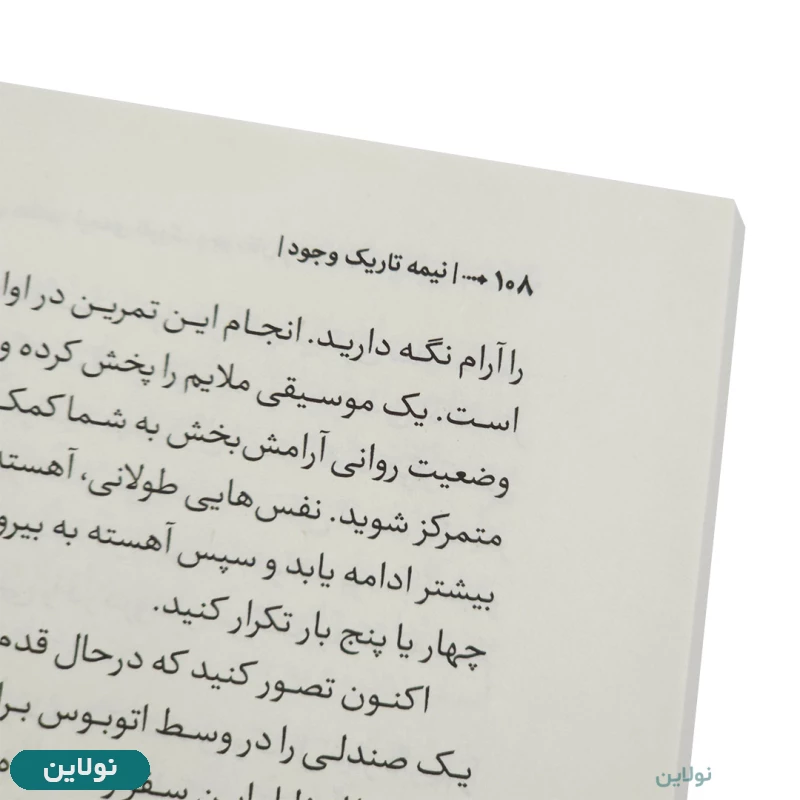 ۱۰۸ | نیمه تاریک وجود |
را آرام نگه دارید. انجام این تمرین در
است. یک موسیقی ملایم را پخش کرده و
وضعیت روانی آرامش‌بخش به شما کمک
متمرکز شوید. نفس‌هایی طولانی، آهسته
بیشتر ادامه یابد و سپس آهسته به
چهار یا پنج بار تکرار کنید.
اکنون تصور کنید که درحال قدم
یک صندلی را در وسط اتوبوس
این سفر
نولاین
نولاین